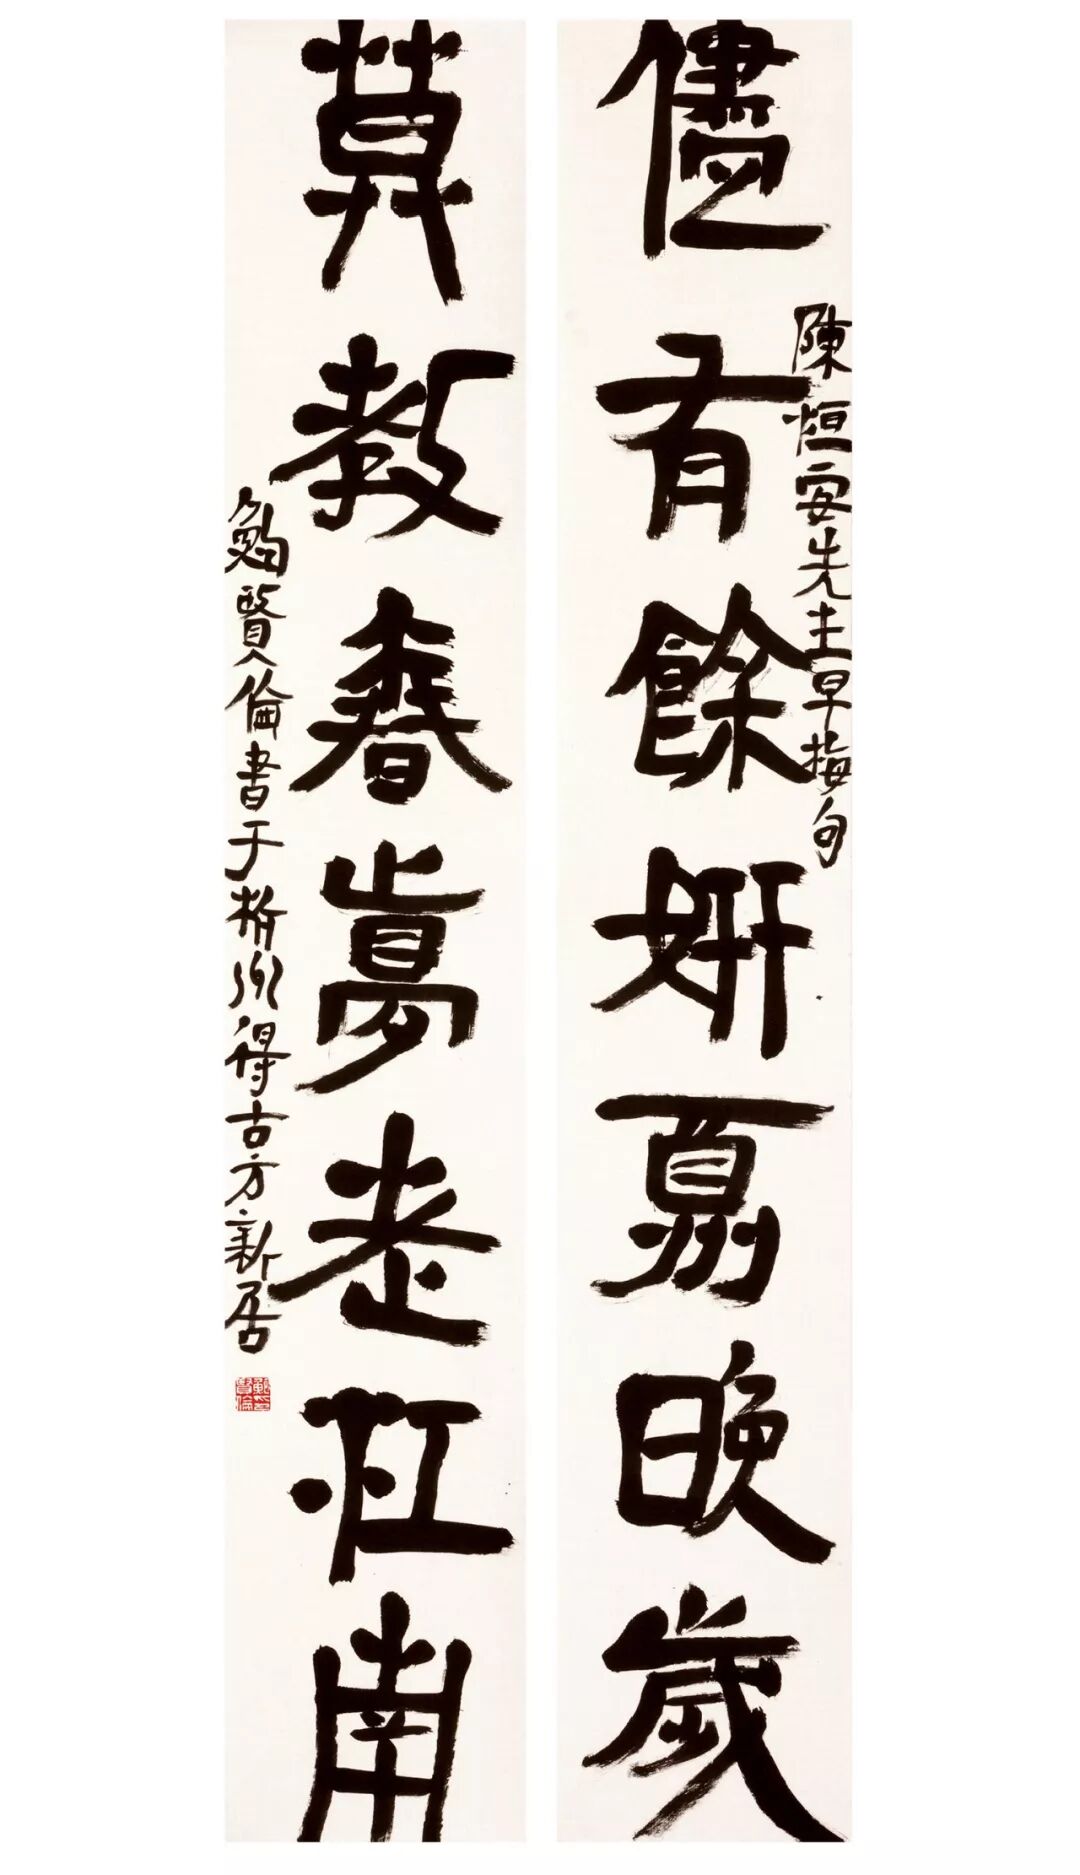 儘有餘妍晚歲
陳恒安先生早梅句
莫教春夢老江南
鮑賢倫書于杭州得古方新居